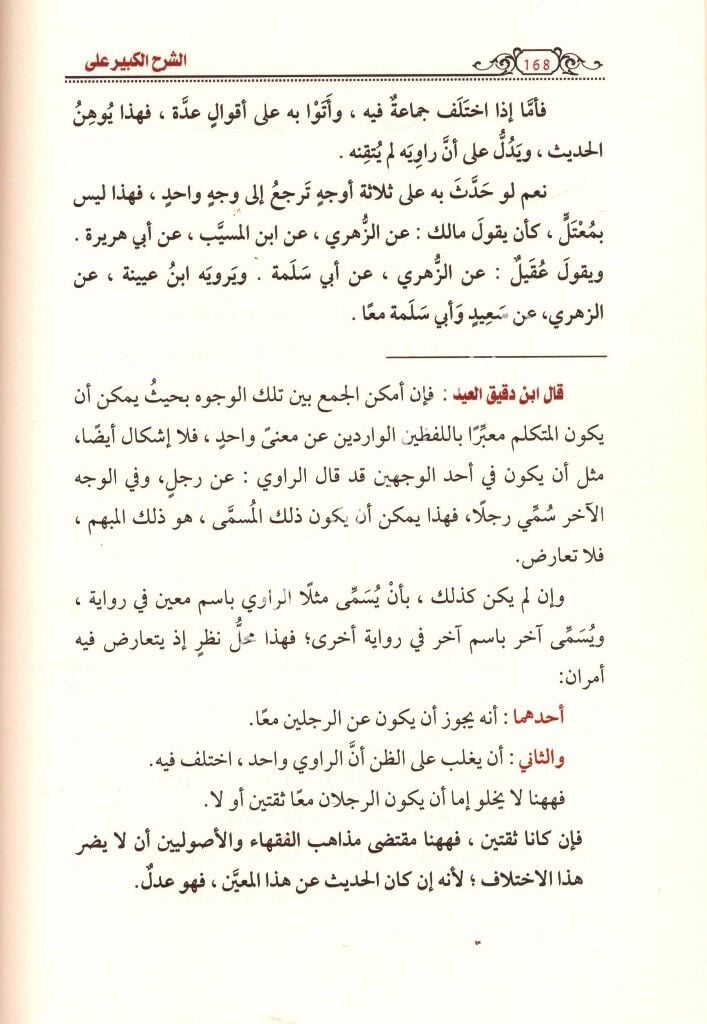 الشرح الكبير على
168
فأمَّا إذا اختَلَف جماعةٌ فيه ، وأَتَوْا به على أقوالٍ عدَّة ، فهذا يُوهِنُ
الحديث ، ويَدُلُّ على أنَّ راوِيَه لم يُتقِنه .
نعم لو حَدَّثَ به على ثلاثة أوجهٍ تَرجعُ إلى وجهٍ واحدٍ ، فهذا ليس
بمُعْتَلٍّ ، كأن يقولَ مالك : عن الزُّهري ، عن ابن المسيَّب ، عن أبي هريرة .
ويقولَ عُقَيلٌ : عن الزُّهري ، عن أبي سَلَمة . ويَرويَه ابنُ عيينة ، عن
الزهري، عن سَعِيدٍ وَأبي سَلَمة معًا .
قال ابن دقيق العيد : فإن أمكن الجمع بين تلك الوجوه بحيثُ يمكن أن
يكون المتكلم معبِّرًا باللفظين الواردين عن معنىً واحدٍ ، فلا إشكال أيضًا،
مثل أن يكون في أحد الوجهين قد قال الراوي : عن رجلٍ، وفي الوجه
الآخر سُمِّي رجلًا، فهذا يمكن أن يكون ذلك المُسمَّى ، هو ذلك المبهم ،
فلا تعارض.
وإن لم يكن كذلك ، بأنْ يُسَمِّى مثلًا الراوي باسم معين في رواية ،
ويُسَمِّى آخر باسم آخر في رواية أخرى؛ فهذا محلُّ نظرٍ إذ يتعارض فيه
أمران:
أحدهما : أنه يجوز أن يكون عن الرجلين معًا.
والثاني : أن يغلب على الظن أنَّ الراوي واحد ، اختلف فيه.
فههنا لا يخلو إما أن يكون الرجلان معًا ثقتين أو لا.
فإن كانا ثقتين ، فههنا مقتضى مذاهب الفقهاء والأصوليين أن لا يضر
هذا الاختلاف ؛ لأنه إن كان الحديث عن هذا المعيَّن ، فهو عدلٌ.